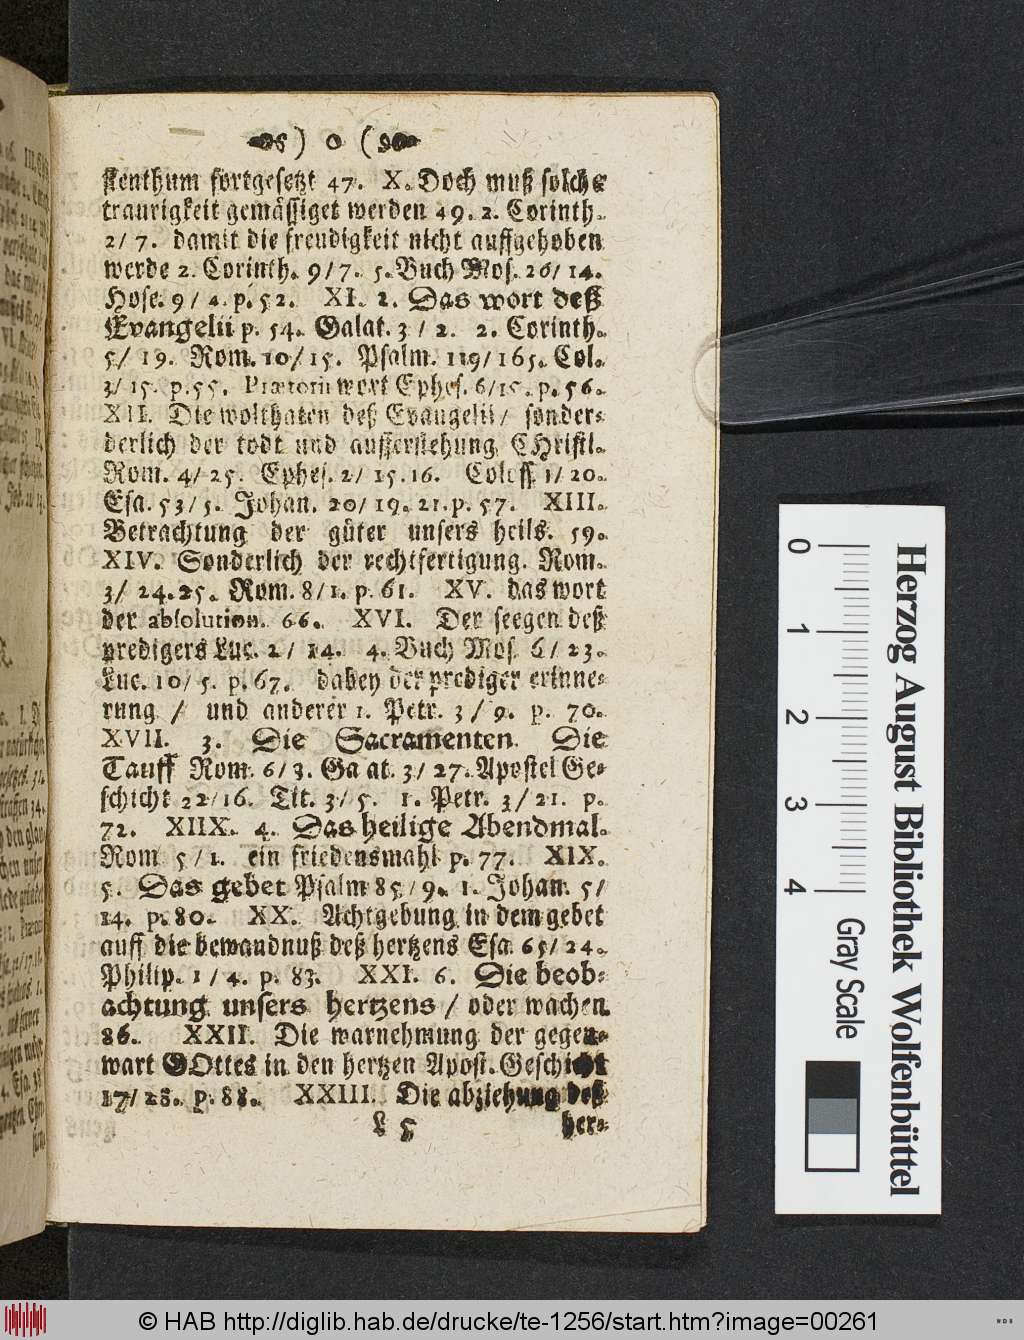 ) o (
stenthum fortgesetzt 47. X. Doch muß solche
traurigkeit gemässiget werden 49. 2. Corinth.
2/ 7. damit die freudigkeit nicht auffgehoben
werde 2. Corinth. 9/7. 5. Buch Mos. 26/14.
Hose. 9/ 4. p. 52. XI. 2. Das wort deß
Evangelii p. 54. Galat. 3/ 2. 2. Corinth.
5/ 19. Rom. 10/15. Psalm. 119/165. Col.
3/ 15. p. 55. Prætorii wort Ephes. 6/15. p. 56.
XII. Die wolthaten deß Evangelii/ sonder-
derlich der todt und aufferstehung CHristi.
Rom. 4/ 25. Ephes. 2/ 15. 16. Coloss 1/ 20.
Esa. 53/ 5. Johan. 20/ 19. 21. p. 57. XIII.
Betrachtung der güter unsers heils. 59.
XIV. Sonderlich der rechtfertigung. Rom.
3/ 24. 25. Rom. 8/1. p. 61. XV. das wort
der absolution. 66. XVI. Der seegen deß
predigers Luc. 2/ 14. 4. Buch Mos. 6/ 23.
Luc. 10/ 5. p. 67. dabey der prediger erinne-
rung / und anderer 1. Petr. 3/ 9. p. 70.
XVII. 3. Die Sacramenten. Die
Tauff Rom. 6/ 3. Ga at. 3/ 27. Apostel Ge-
schicht 22/16. Tit. 3/ 5. 1. Petr. 3/ 21. p.
72. XIIX. 4. Das heilige Abendmal.
Rom 5/ 1. ein friedensmahl p. 77. XIX.
5. Das gebet Psalm 85/ 9. 1. Johan. 5/
14. p. 80. XX. Achtgebung in dem gebet
auff die bewandnuß deß hertzens Esa. 65/ 24.
Philip. 1/ 4. p. 83. XXI. 6. Die beob-
achtung unsers hertzens / oder wachen
86. XXII. Die warnehmung der gegen-
wart GOttes in den hertzen Apost. Geschicht
17/ 28. p. 88. XXIII. Die abziehung deß
L 5 her-
Herzog August Bibliothek Wolfenbüttel
0 1 2 3 4
Gray Scale
© HAB http://diglib.hab.de/drucke/te-1256/start.htm?image=00261